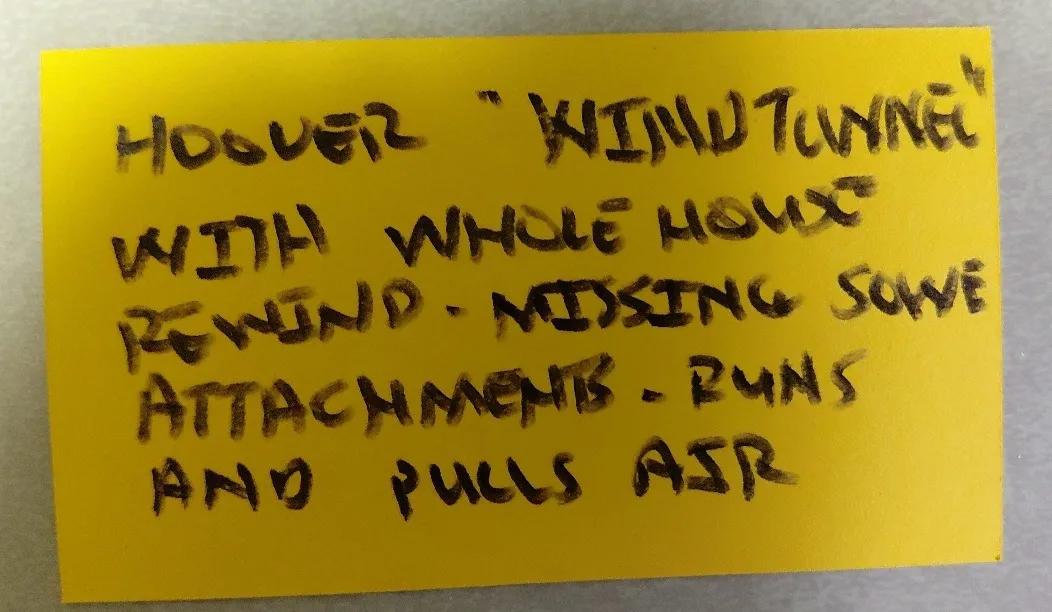 HOOVER "WINDTUNNEL"
WITH WHOLE HOUSE
REWIND - MISSING SOME
ATTACHMENTS - RUNS
AND PULLS AIR